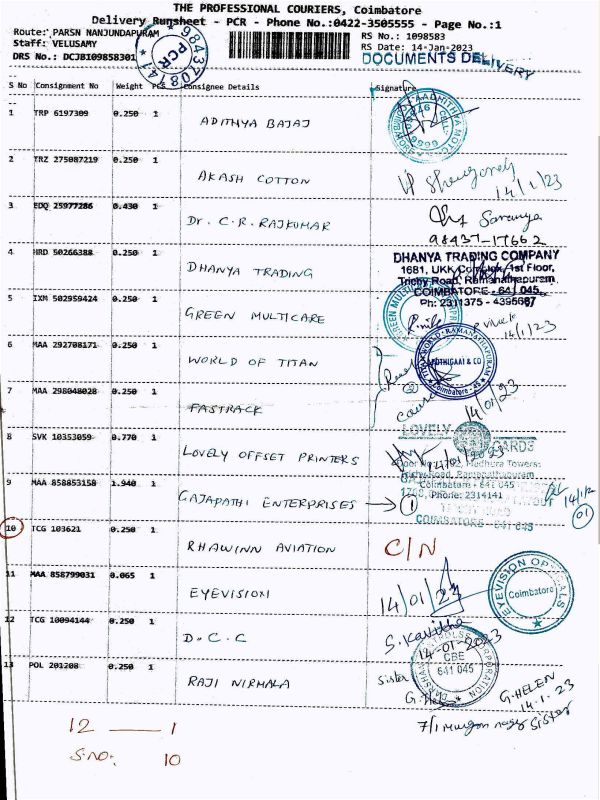 THE PROFESSIONAL COURIERS, Coimbatore
Delivery Runsheet - PCR - Phone No.:0422-3505555 - Page No.:1
Route: PARSN NANJUNDAPURAM
RS No.: 1098583
Staff: VELUSAMY
RS Date: 14-Jan-2023
DRS No.: DCJB109858301
PCR
9843708141
DOCUMENTS DELIVERY
S No Consignment No Weight PCS Consignee Details Signature
1 TRP 6197309 0.250 1 ADITHYA BAJAJ
2 TRZ 275087219 0.250 1 AKASH COTTON
14/1/23
3 EDQ 25977286 0.430 1 Dr. C.R. RAJKUMAR
Saranya
98437-17662
4 HRD 50266388 0.250 1 DHANYA TRADING
DHANYA TRADING COMPANY
1681, UKK Complex, 1st Floor,
Trichy Road, Ramanathapuram,
COIMBATORE - 641 045.
Ph: 2311375 - 4395687
5 IXM 502959424 0.250 1 GREEN MULTICARE
14/1/23
6 MAA 292708171 0.250 1 WORLD OF TITAN
POTHIGAAI & CO
Coimbatore - 45
7 MAA 298048028 0.250 1 FASTRACK
②
14/01/23
8 SVK 10353059 0.770 1 LOVELY OFFSET PRINTERS
LOVELY CARDS
Ramanathapuram
Coimbatore - 641 045
Phone: 2314141
9 MAA 858853158 1.940 1 GAJAPATHI ENTERPRISES → ①
COIMBATORE - 641 045
14/1/23
01
10 TCG 103621 0.250 1 RHAWINN AVIATION
C/N
11 MAA 858799031 0.065 1 EYEVISION
14/01/23
EYEVISION OPTICALS
Coimbatore
12 TCG 10094144 0.250 1 D.C.C
S. Kavitha
14-01-2023
CBE
641 045
13 POL 201208 0.250 1 RAJI NIRMALA
Sister
G. HELEN
14.1.23
Sister
12 — 1
S.no: 10